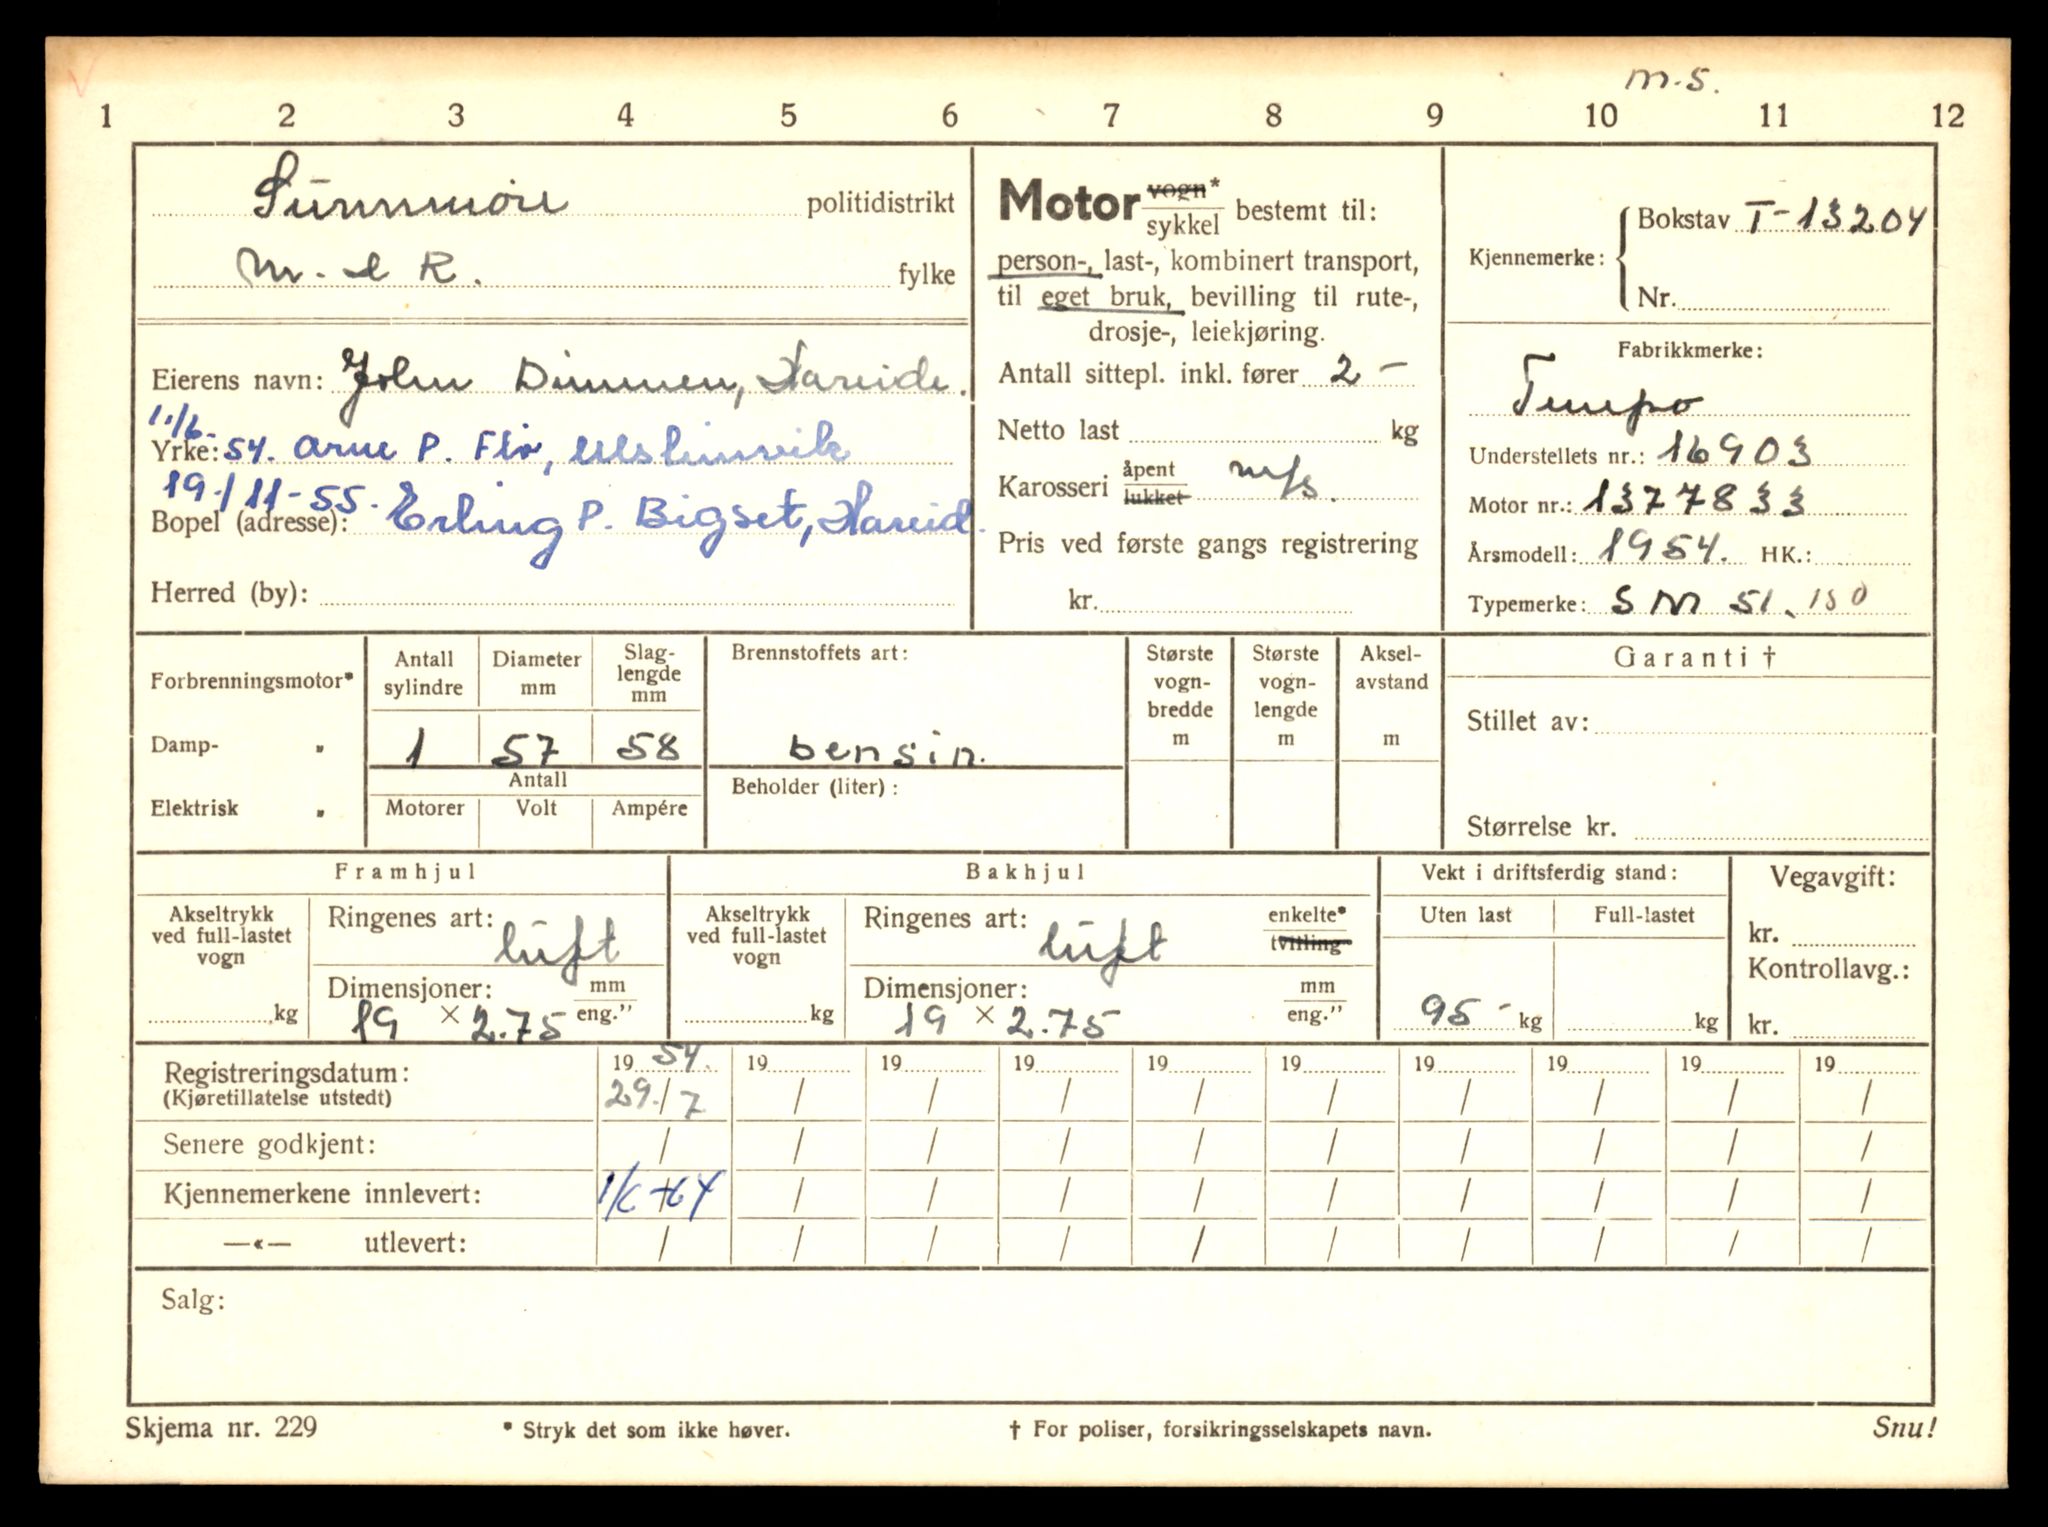 m.s.
1 2 3 4 5 6 7 8 9 10 11 12
Sunnmøre politidistrikt
M. & R. fylke
Eierens navn: John Dimmen, Hareide.
11/6-
Yrke: 54. Arne P. Flø, Ulsteinvik
19/11-55. Erling P. Bigset, Hareid.
Bopel (adresse):
Herred (by):
Motor vogn* sykkel bestemt til:
person-, last-, kombinert transport,
til eget bruk, bevilling til rute-,
drosje-, leiekjøring.
Antall sittepl. inkl. fører 2 -
Netto last kg
Karosseri åpent lukket m/s.
Pris ved første gangs registrering
kr.
Kjennemerke: Bokstav T-13204
Nr.
Fabrikkmerke:
Tempo
Understellets nr.: 16903
Motor nr.: 1377833
Årsmodell: 1954. HK.:
Typemerke: SM 51. 150
Forbrenningsmotor*
Damp- „
Elektrisk „
Antall sylindre
Diameter mm
Slag-lengde mm
1 57 58
Antall
Motorer Volt Ampére
Brennstoffets art:
bensin.
Beholder (liter):
Største vogn-bredde m
Største vogn-lengde m
Aksel-avstand m
Garanti †
Stillet av:
Størrelse kr.
Framhjul
Akseltrykk ved full-lastet vogn
kg
Ringenes art: luft
Dimensjoner: mm eng.”
19 × 2.75
Bakhjul
Akseltrykk ved full-lastet vogn
kg
Ringenes art: luft enkelte* tvilling
Dimensjoner: mm eng.”
19 × 2.75
Vekt i driftsferdig stand:
Uten last Full-lastet
95 - kg kg
Vegavgift:
kr.
Kontrollavg.:
kr.
Registreringsdatum: 19 54. 19 19 19 19 19 19 19 19 19
(Kjøretillatelse utstedt) 29./7 / / / / / / / / /
Senere godkjent: / / / / / / / / / /
Kjennemerkene innlevert: 1/6-64 / / / / / / / / /
—«— utlevert: / / / / / / / / / /
Salg:
Skjema nr. 229 * Stryk det som ikke høver. † For poliser, forsikringsselskapets navn. Snu!